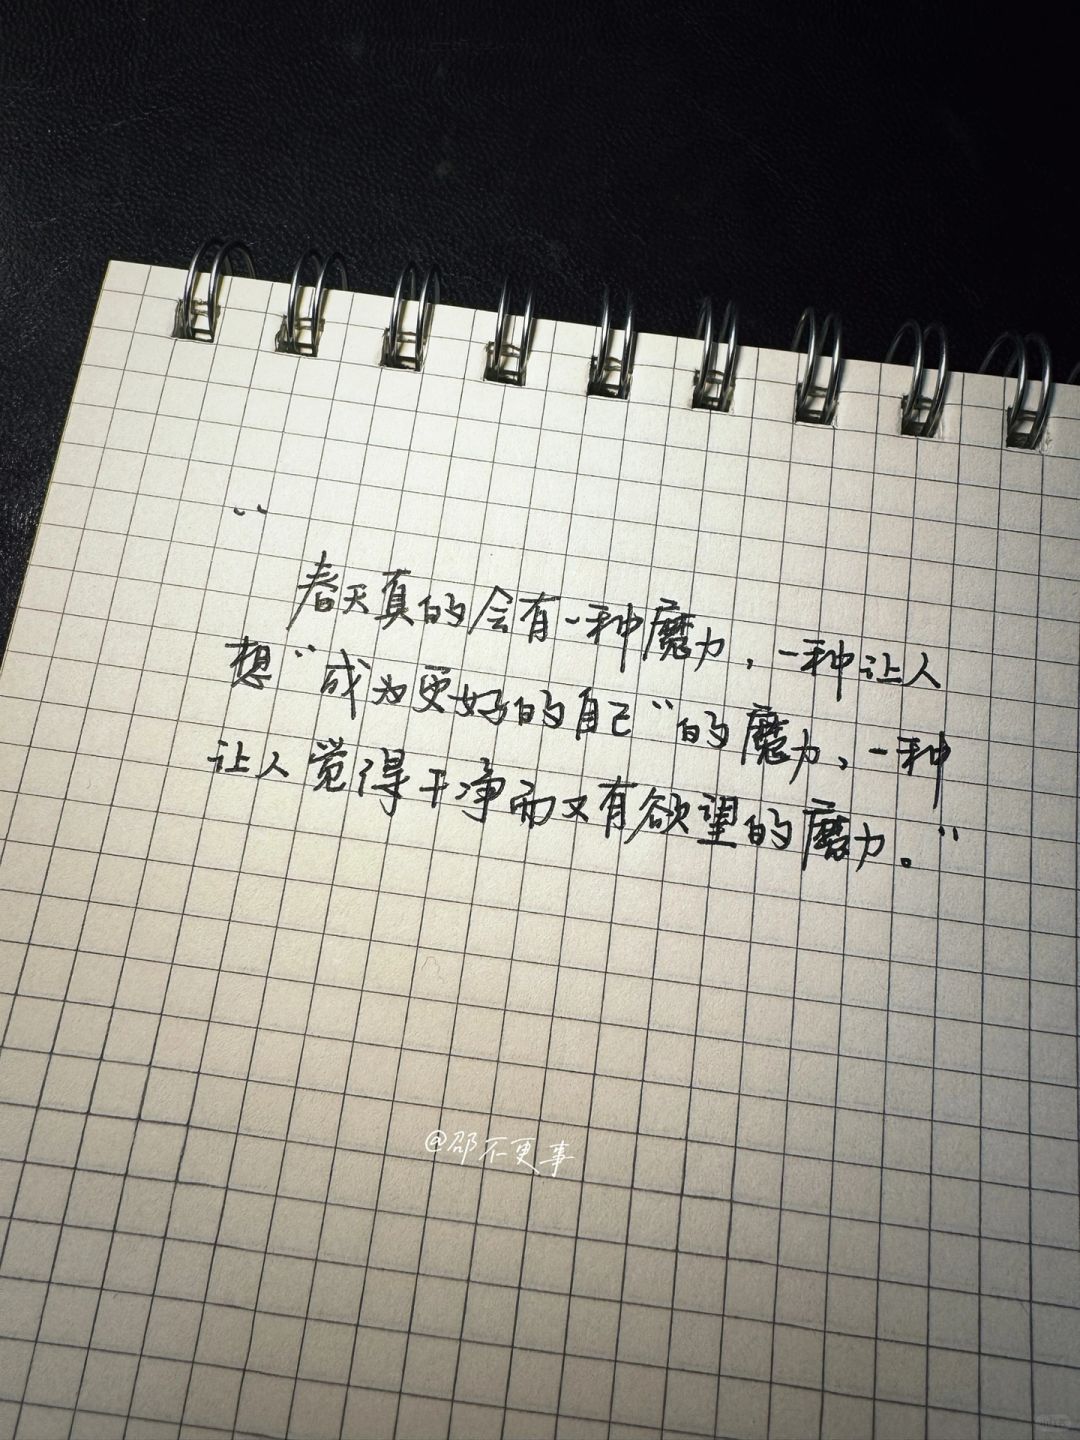 “
春天真的会有一种魔力，一种让人
想“成为更好的自己”的魔力，一种
让人觉得干净而又有欲望的魔力。”
@邵不更事